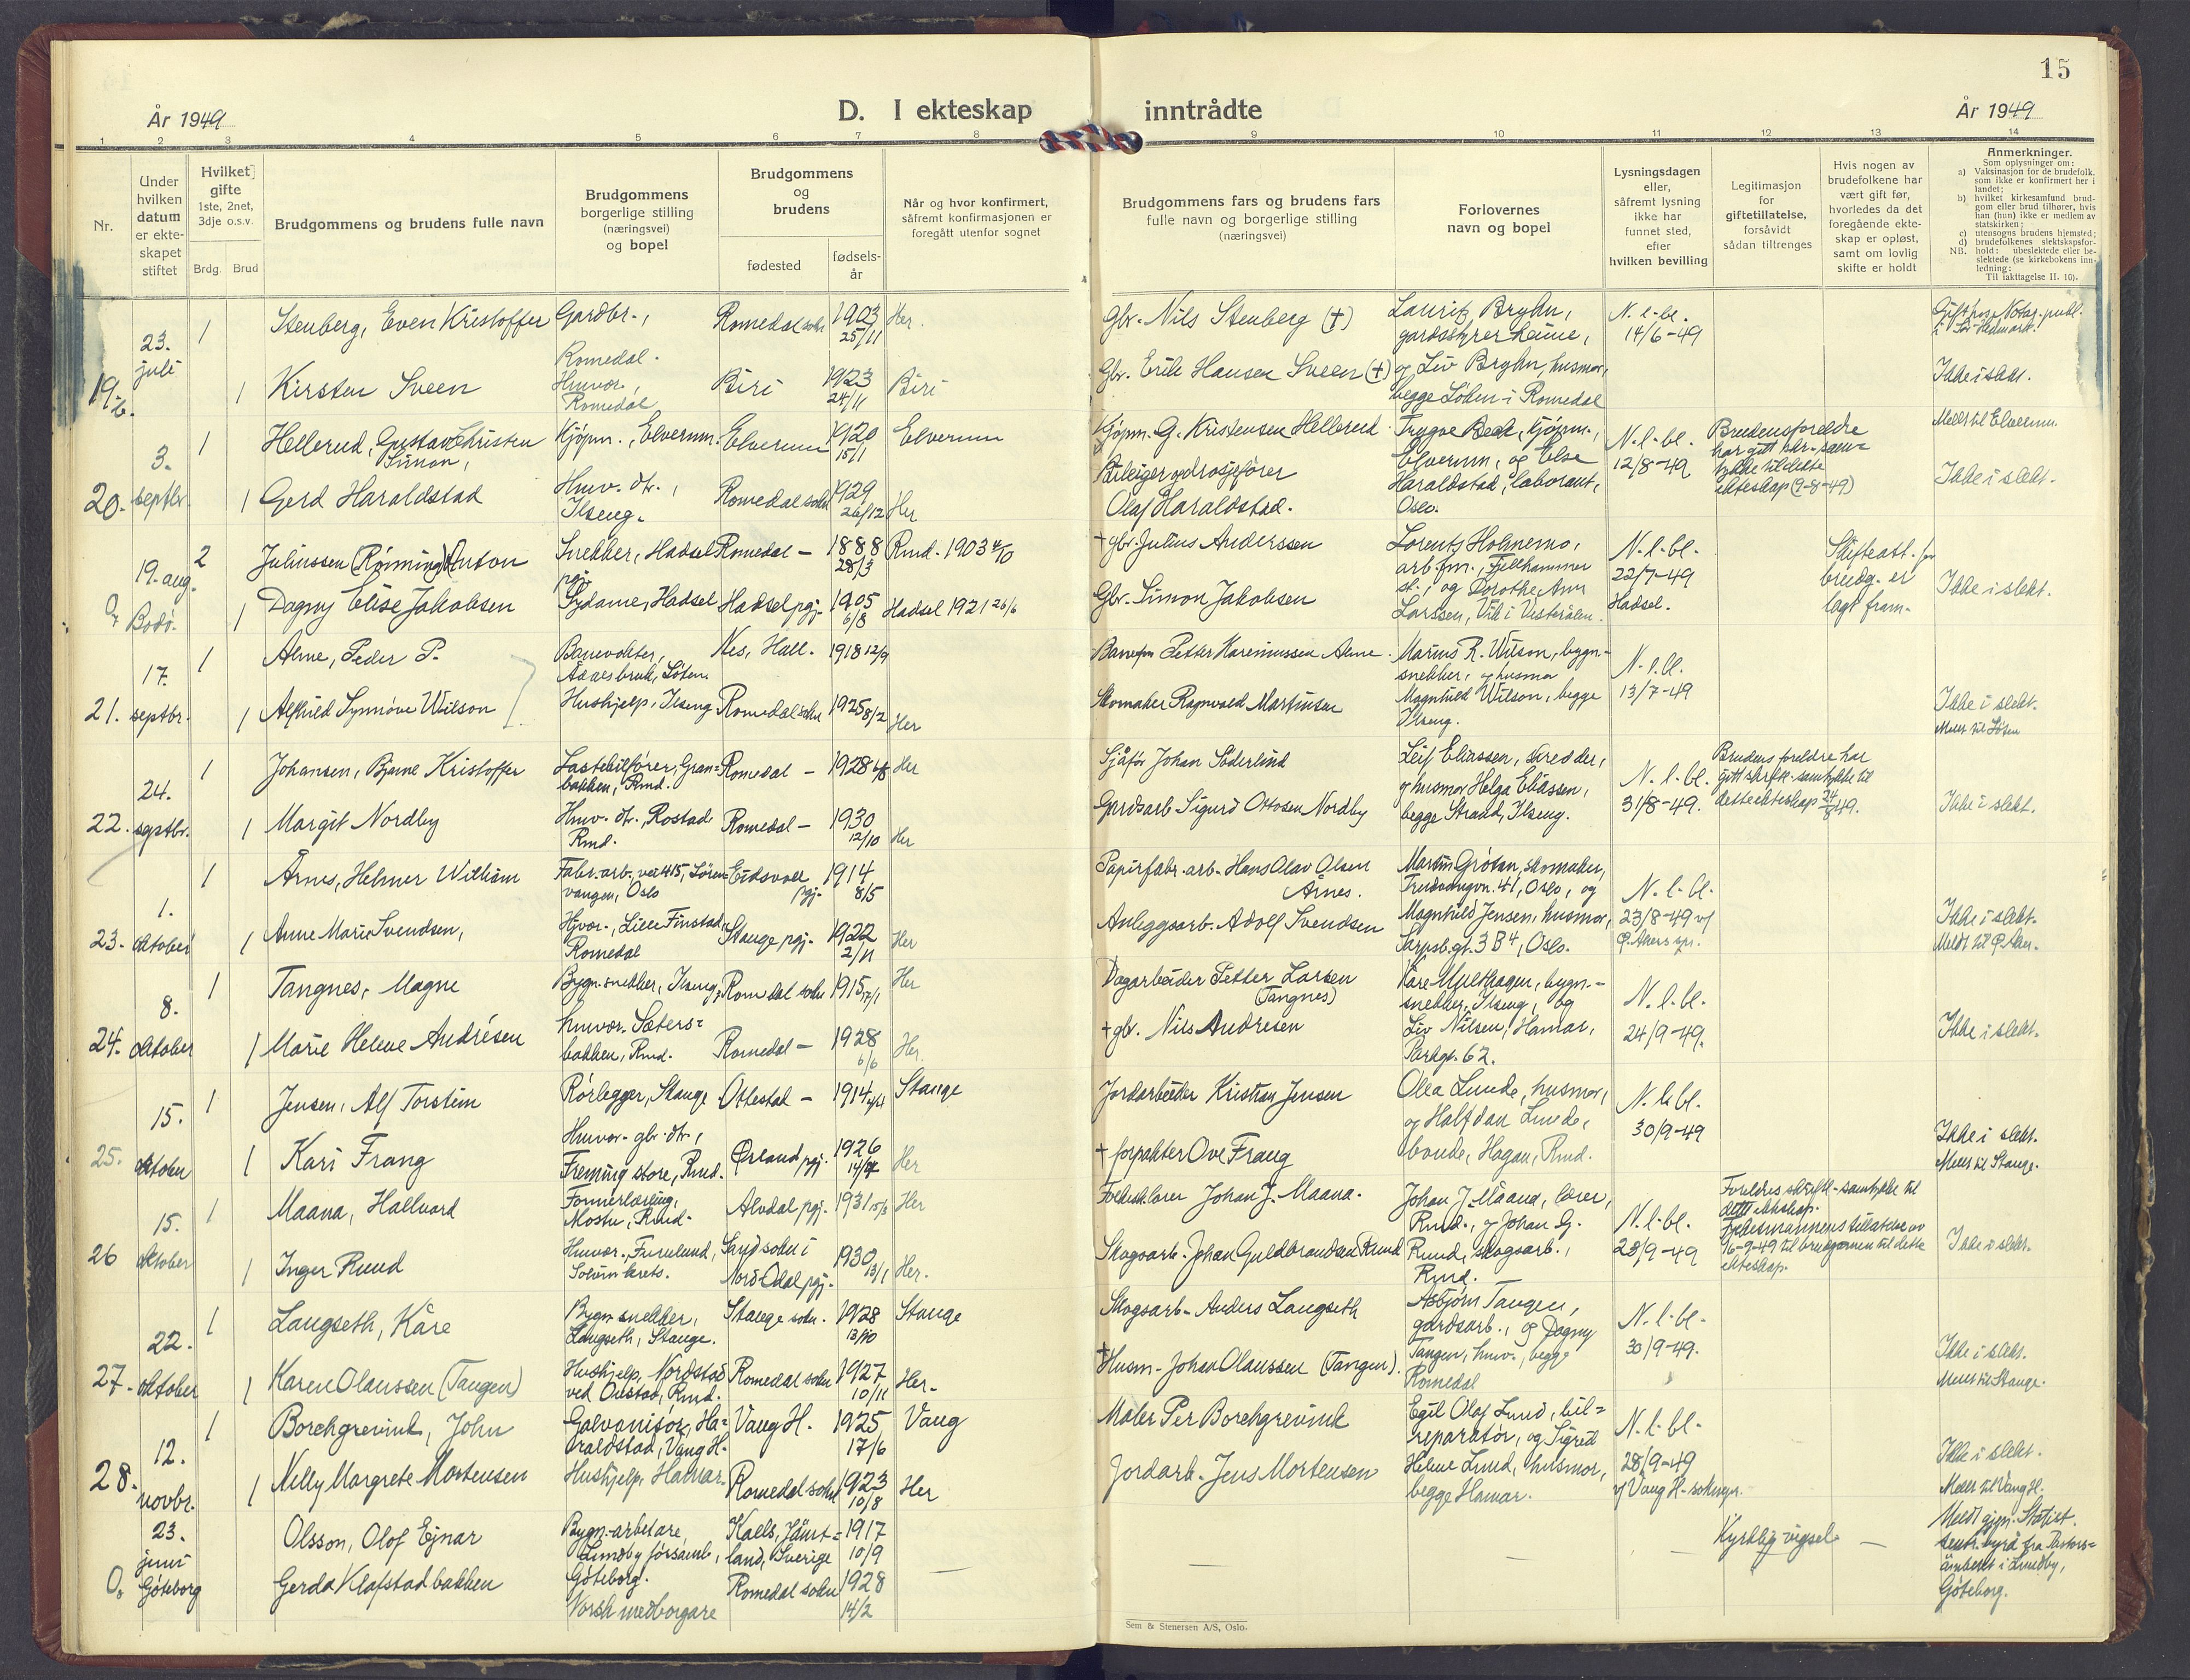 15
År 1949
D. I ekteskap inntrådte
År 1949
1 2 3 4 5 6 7 8 9 10 11 12 13 14
Nr.
Under hvilken datum er ekteskapet stiftet
Hvilket gifte 1ste, 2net, 3dje o.s.v.
Brdg. Brud
Brudgommens og brudens fulle navn
Brudgommens borgerlige stilling (næringsvei) og bopel
Brudgommens og brudens
fødested
fødselsår
Når og hvor konfirmert, såfremt konfirmasjonen er foregått utenfor sognet
Brudgommens fars og brudens fars fulle navn og borgerlige stilling (næringsvei)
Forlovernes navn og bopel
Lysningsdagen eller, såfremt lysning ikke har funnet sted, efter hvilken bevilling
Legitimasjon for giftetillatelse, forsåvidt sådan tiltrenges
Hvis nogen av brudefolkene har vært gift før, hvorledes da det foregående ekteskap er opløst, samt om lovlig skifte er holdt
Anmerkninger.
Som oplysninger om:
a) Vaksinasjon for de brudefolk, som ikke er konfirmert her i landet;
b) hvilket kirkesamfund brudgom eller brud tilhører, hvis han (hun) ikke er medlem av statskirken;
c) utensogns brudens hjemsted;
d) brudefolkenes slektskapsforhold: ubeslektede eller beslektede (se kirkebokens innledning:
NB. Til iakttagelse II. 10).
19 b. 23. juli
1 Stenberg, Even Kristoffer Gardbr., Romedal. Romedal sokn 1903 25/11 Her.
Gbr. Nils Stenberg (†) Lauritz Bryhn, gardsstyrer N. l. bl. 14/6-49
1 Kirsten Sveen Husvor., Romedal Biri 1923 24/11 Biri
Gbr. Erik Hansen Sveen (†) og Liv Bryhn, husmor, begge Løken i Romedal Ikke i slekt.
20. 3. septbr.
1 Hellerud, Gustav Christen Simon, Kjøpm., Elverum. Elverum 1920 15/1 Elverum
Kjøpm. G. Kristensen Hellerud. Trygve Beck, kjøpm., Elverum, og Else Haraldstad, laborant, Oslo. N. l. bl. 12/8-49 Brudens foreldre har gitt skr. samtykke til dette ekteskap (9-8-49) Meldt til Elverum.
1 Gerd Haraldstad Husv. dtr., Ilseng. Romedal sokn 1929 26/12 Her
Bileiger og drosjefører Olaf Haraldstad. Ikke i slekt.
O. 19. aug. Bodø.
2 Juliussen (Rønning) Anton Snekker, Hadsel pgj. Romedal — 1888 28/3 Rmd. 1903 4/10
† gbr. Julius Anderssen Lorentz Holmemo, arb.fm., Fjellhammer st., og Dorothe Larssen, Vik i Vesterålen. N. l. bl. 22/7-49 Hadsel. Skifteatt. for brudg. er lagt fram. Ikke i slekt.
1 Dagny Elise Jakobsen Sydame, Hadsel Hadsel pgj. 1905 6/8 Hadsel 1921 26/6
Gbr. Simon Jakobsen
21. 17. septbr.
1 Alme, Peder P. Banevokter, Ådalsbruk, Løten. Nes, Hall. 1918 12/9
Banefm Petter Marius R. Wilson, bygn.snekker, og husmor Magnhild Wilson, begge Ilseng. N. l. bl. 13/7-49
1 Alfhild Synnøve Wilson Hushjelp, Ilseng Romedal sokn 1925 8/2 Her
Skomaker Ragnvald Martinsen Ikke i slekt. Meldt til Løten
22. 24. septbr.
1 Johansen, Bjarne Kristoffer Lastebilfører, Granbakken, Rmd. Romedal — 1928 Her
Sjåfør Johan Söderlind Leif Eliassen, skredder, og husmor Helga Eliassen, begge Strand, Ilseng. N. l. bl. 31/8-49. Brudens foreldre har gitt skriftl. samtykke til dette ekteskap 24/8 49.
1 Margit Nordby Husv. dtr., Rostad Rmd. Romedal — 1930 12/10 Her
Gardsarb. Sigurd Ottosen Nordby Ikke i slekt.
23. 1. oktober
1 Årnes, Helmer William Fabr.arb., vei 415, Lørenvangen, Oslo Eidsvoll pgj. 1914 8/5
Papirfabr.arb. Hans Olav Olsen Årnes. Martin Grötan, skomaker, 41, Oslo, og Magnhild Jensen, husmor, Sarpsb.gt. 3 B 4, Oslo. N. l. bl. 23/8-49 v/ Ø. Akers spr.
1 Anne Marie Svendsen, Hjvor., Lille Finstad, Romedal Stange pgj. 1922 2/11 Her
Anleggsarb. Adolf Svendsen Ikke i slekt. Meldt til Ø. Aker.
24. 8. oktober
1 Tangnes, Magne Bygn.snekker, Ilseng, Romedal sokn 1915 17/1 Her
Dagarbeider Petter Larsen (Tangnes) Kåre Multhagen, bygn.snekker, Ilseng, og Liv Nilsen, Hamar, Parkgt. 62. N. l. bl. 24/9-49.
1 Marie Helene Andrésen husvor. Sætersbakken, Rmd. Romedal — 1928 6/6 Her.
† gbr. Nils Andresen Ikke i slekt.
25. 15. oktober
1 Jensen, Alf Torstein Rørlegger, Stange Ottestad — 1914 Stange
Jordarbeider Kristian Jensen Olea Lunde, husmor, og Halfdan Lunde, bonde, Hagan, Rmd. N. l. bl. 30/9-49
1 Kari Frang Husvor. gbr. dtr., Freming store, Rmd. Ørland pgj. 1926 Her
† forpakter Ove Frang Ikke i slekt. Meldt til Stange.
26 15. oktober
1 Maana, Hallvard Formerlærling, Mostu, Rmd. Alvdal pgj. 1931 15/6 Her
Folkeskolærer Johan J. Maana. Johan J. Måana, lærer, Rmd., og Johan G. Ruud, skogsarb., Rmd. N. l. bl. 23/9-49 Foreldres skriftl. samtykke til dette ekteskap. Fylkesmannens tillatelse av 16-9-49 til brudgommen til dette ekteskap.
1 Inger Ruud Husvor., Furulund, Solum krets. Sand sokn i Nord Odal pgj. 1930 13/1 Her.
Skogsarb. Johan Guldbrandsen Ruud Ikke i slekt.
27. 22. oktober
1 Langseth, Kåre Bygn.snekker, Langseth, Stange. Stange sokn. 1928 13/10 Stange
Skogsarb. Anders Langseth Asbjørn Tangen, gardsarb., og Dagny Tangen, husv., begge Romedal N. l. bl. 30/9-49.
1 Karen Olaussen (Tangen) Hushjelp, Nordstad ved Oustad, Rmd. Romedal sokn 1927 10/11 Her.
† Husm. Johan Olaussen (Tangen). Ikke i slekt. Meldt til Stange.
28. 12. novbr.
1 Borchgrevink, John Galvanisør, Haraldstad, Vang H. Vang H. 1925 17/6 Vang
Maler Per Borchgrevink Egil Olaf Lund, bilreparatør, og Sigrid Helene Lund, husmor, begge Hamar. N. l. bl. 28/9-49 v/ Vang H. soknepr.
1 Nelly Margrete Mortensen Hushjelp, Hamar. Romedal sokn 1923 10/8 Her
Jordarb. Jens Mortensen Ikke i slekt. Meldt til Vang H.
O. 23. juni Göteborg
Olsson, Olof Ejnar Bygn.arbetare, Lundby församl., Göteborg. Kaels, Jämtland, Sverige 1917 10/9 —
— — — Kyrklig vigsel — Meldt gjen. Statist. sentr.byrå fra Pastorsämbetet i Lundby, Göteborg.
Gerda Klafstadbakken Norsk medborgare Romedal sokn 1928 14/2
Sem & Stenersen A/S, Oslo.